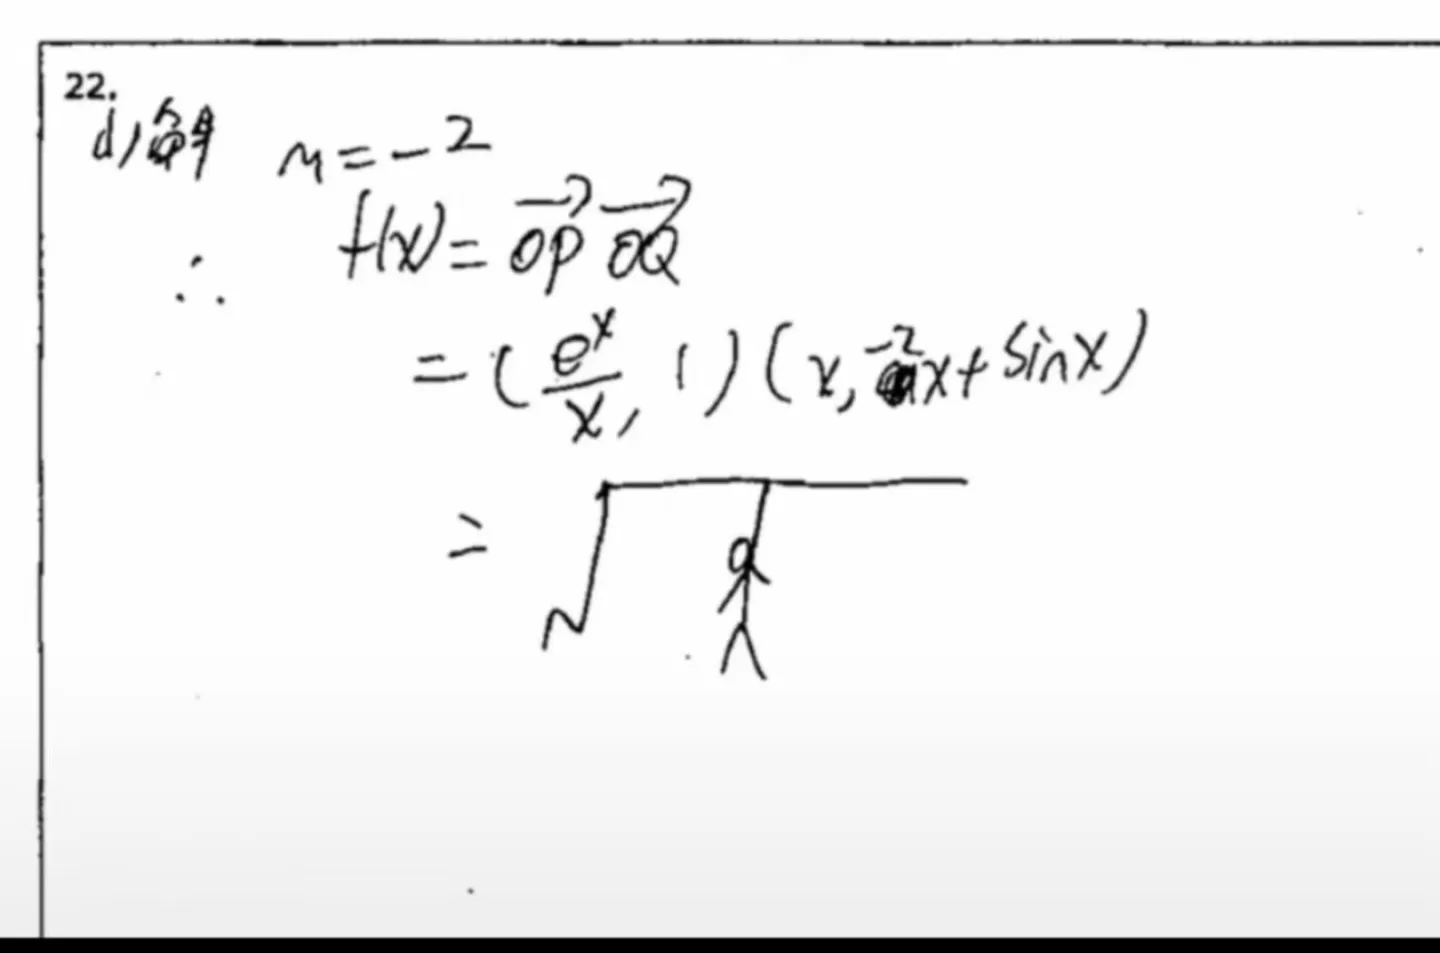 22.
(1)解 m=-2
∴ f(x)=\overrightarrow{OP} \overrightarrow{OQ}
=(\frac{e^x}{x}, 1)(x, -2x+sinx)
=√